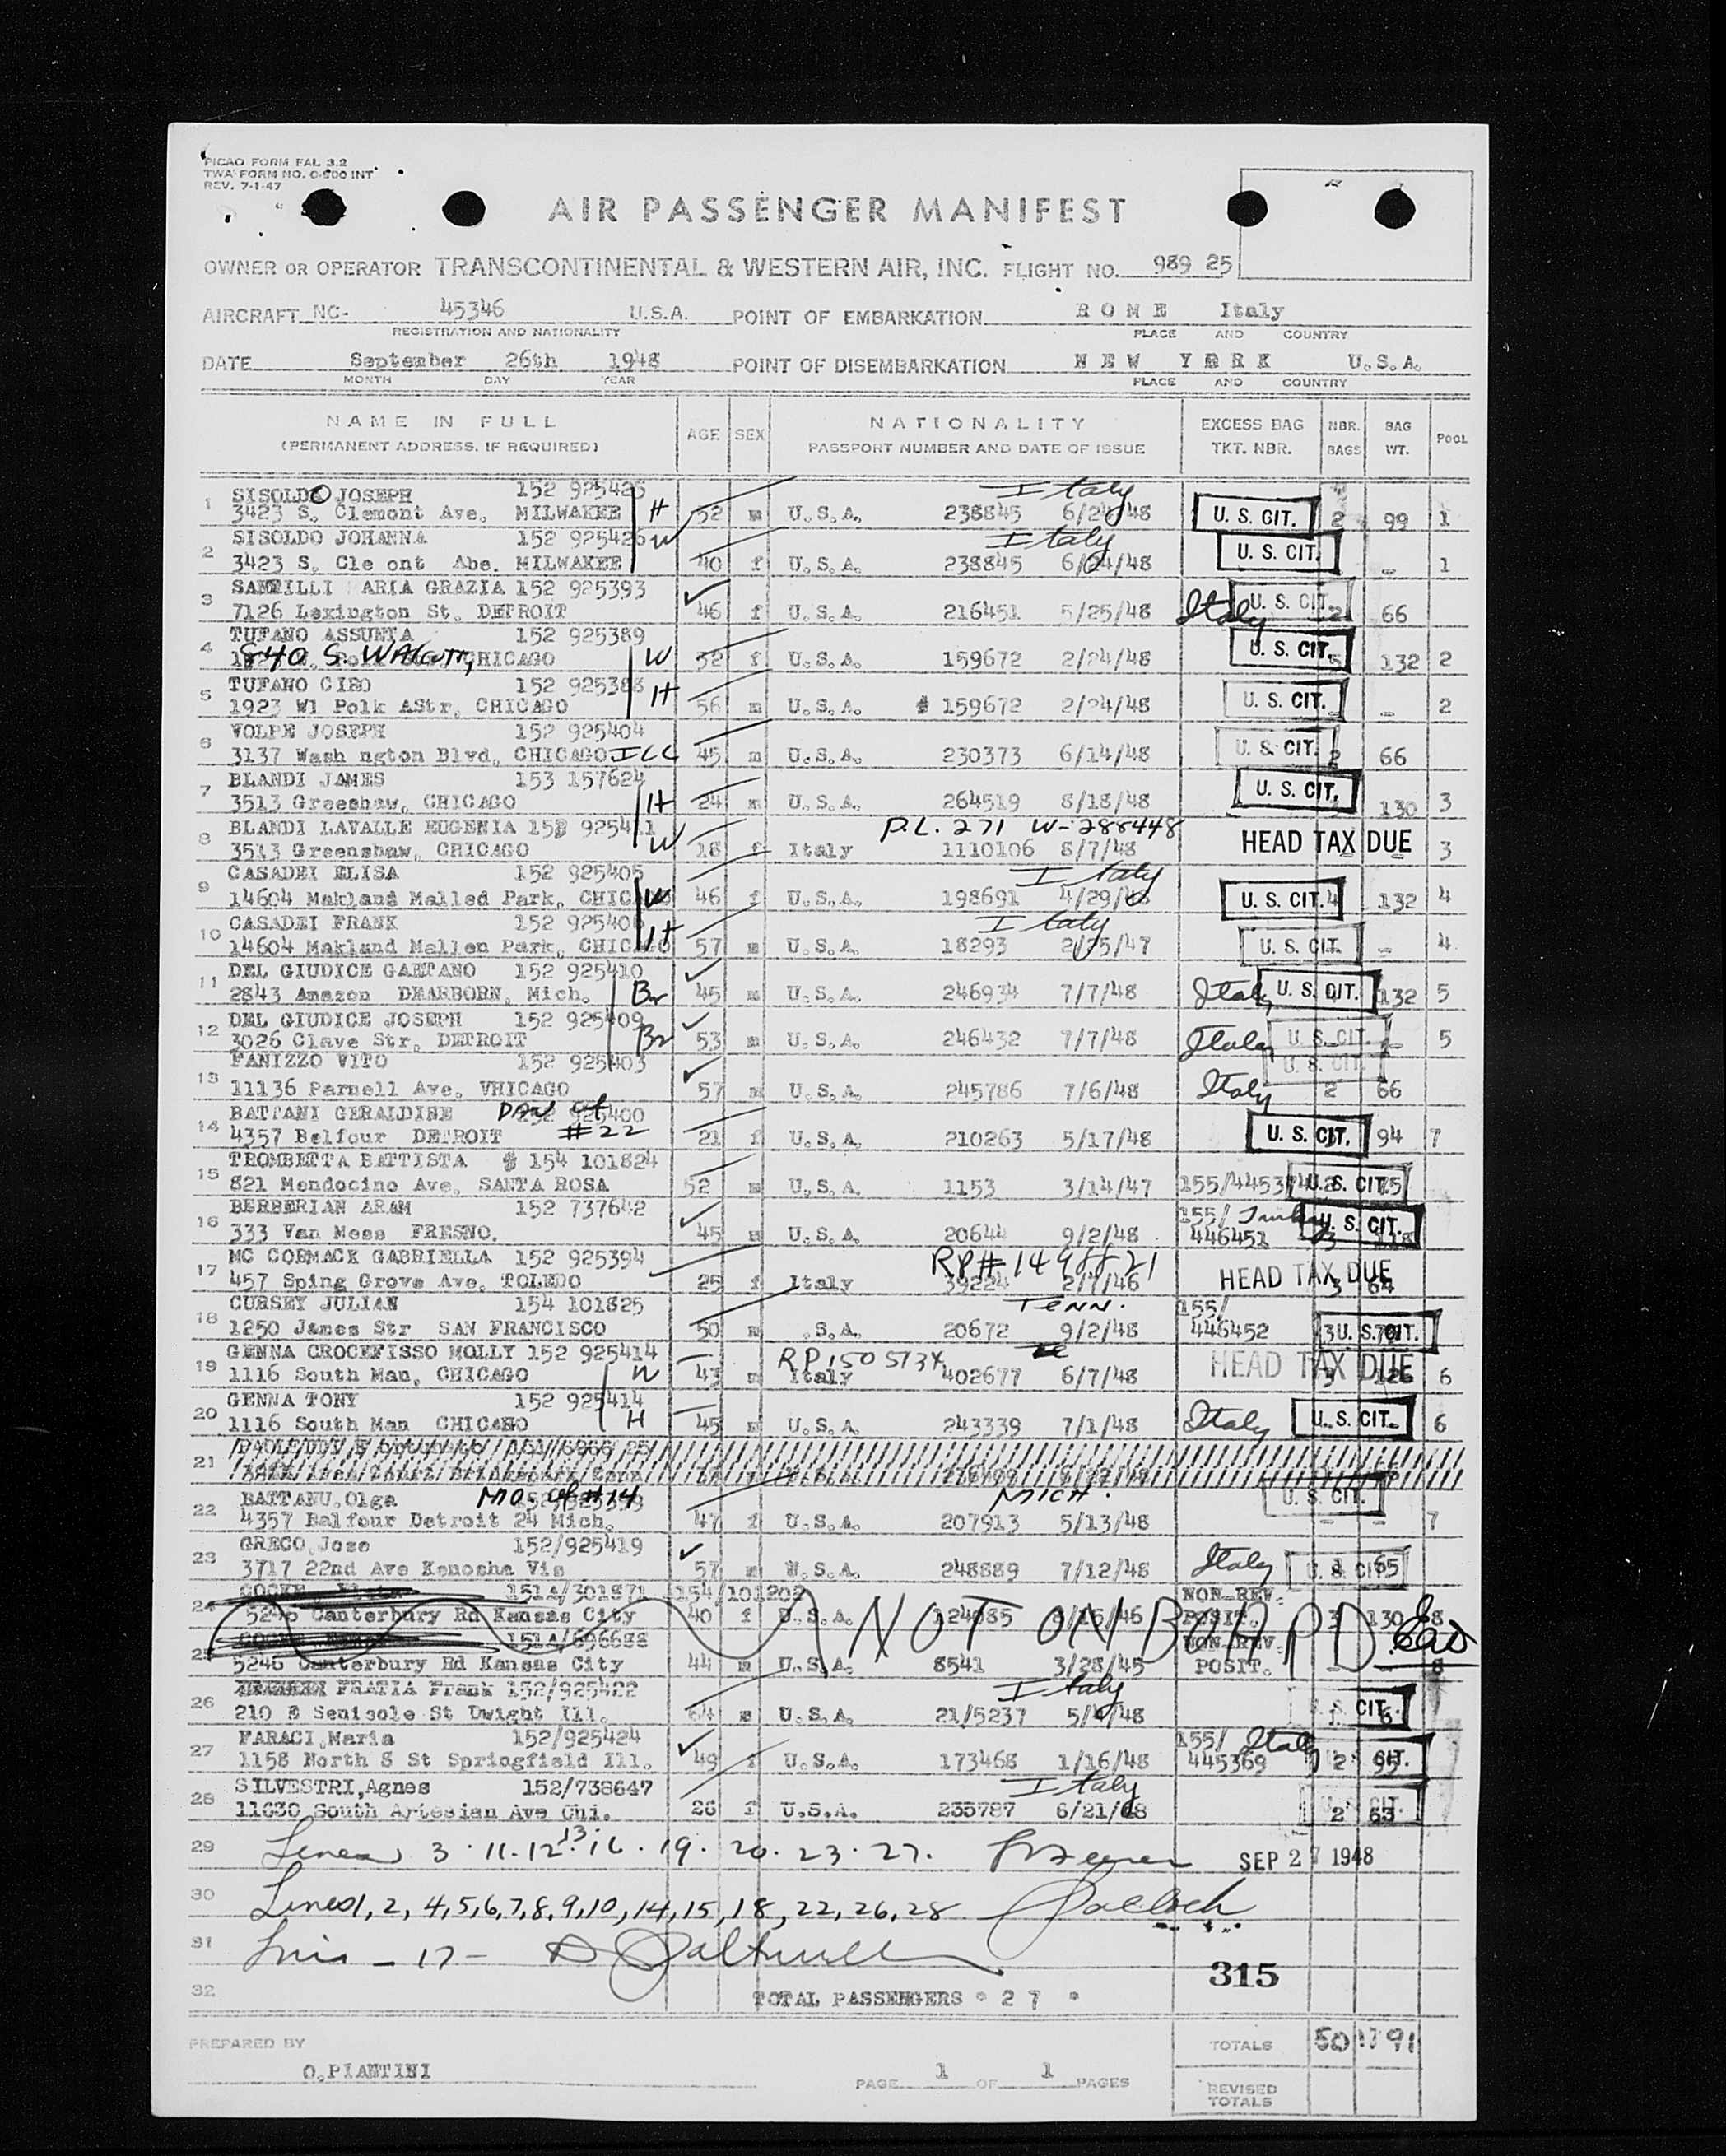 PICAO FORM FAL 3.2
TWA FORM NO. O-900 INT
REV. 7-1-47
AIR PASSENGER MANIFEST
OWNER OR OPERATOR TRANSCONTINENTAL & WESTERN AIR, INC. FLIGHT NO. 989 25
AIRCRAFT NC- 45346 U.S.A. POINT OF EMBARKATION ROME Italy
REGISTRATION AND NATIONALITY PLACE AND COUNTRY
DATE September 26th 1948 POINT OF DISEMBARKATION NEW YORK U.S.A.
MONTH DAY YEAR PLACE AND COUNTRY
NAME IN FULL AGE SEX NATIONALITY EXCESS BAG NBR. BAG POOL
(PERMANENT ADDRESS, IF REQUIRED) PASSPORT NUMBER AND DATE OF ISSUE TKT. NBR. BAGS WT.
1 SISOLDO JOSEPH 152 925425 Italy
3423 S. Clemont Ave. MILWAKEE H 52 m U.S.A. 238845 6/24/48 U. S. CIT. 2 99 1
2 SISOLDO JOHANNA 152 925426 W Italy
3423 S. Cle ont Abe. MILWAKEE 40 f U.S.A. 238845 6/24/48 U. S. CIT. - 1
3 ARIA GRAZIA 152 925393
7126 Lexington St. DETROIT 46 f U.S.A. 216451 5/25/48 Italy U. S. CIT. 2 66
4 TUFANO ASSUNTA 152 925389
840 S. WALCOTT, CHICAGO W 52 f U.S.A. 159672 2/24/48 U. S. CIT. 5 132 2
5 TUFANO CIRO 152 925388
1923 Wl Polk AStr. CHICAGO H 56 m U.S.A. # 159672 2/24/48 U. S. CIT. - 2
6 VOLPE JOSEPH 152 925404
3137 Wash ngton Blvd. CHICAGO ILL 45 m U.S.A. 230373 6/14/48 U. S. CIT. 2 66
7 BLANDI JAMES 153 157624
3513 Greeshaw. CHICAGO H 24 m U.S.A. 264519 8/18/48 U. S. CIT. 130 3
8 BLANDI LAVALLE EUGENIA 152 925411 P.L. 271 W-288448
3513 Greenshaw. CHICAGO W 18 f Italy 1110106 8/7/48 HEAD TAX DUE 3
9 CASADEI ELISA 152 925405 Italy
14604 Makland Malled Park. CHICAGO W 46 f U.S.A. 198691 4/29/48 U. S. CIT. 4 132 4
10 CASADEI FRANK 152 925406 Italy
14604 Makland Mallen Park. CHICAGO H 57 m U.S.A. 18293 2/25/47 U. S. CIT. - 4
11 DEL GIUDICE GAETANO 152 925410
2843 Amazon DEARBORN. Mich. Br 45 m U.S.A. 246934 7/7/48 Italy U. S. CIT. 132 5
12 DEL GIUDICE JOSEPH 152 925409
3026 Clave Str. DETROIT Br 53 m U.S.A. 246432 7/7/48 Italy U. S. CIT. - 5
13 FANIZZO VITO 152 925403 U. S. CIT.
11136 Parnell Ave. VHICAGO 57 m U.S.A. 245786 7/6/48 Italy 2 66
14 BATTANI GERALDISE Dau of 925400
4357 Belfour DETROIT #22 21 f U.S.A. 210263 5/17/48 U. S. CIT. 94 7
15 TROMBETTA BATTISTA 154 101824
821 Mendocino Ave. SANTA ROSA 52 m U.S.A. 1153 3/14/47 155/4453 U. S. CIT.
16 BERBERIAN ARAM 152 737642 155/ Turkey
333 Van Ness FRESNO. 45 m U.S.A. 20644 9/2/48 446451 U. S. CIT. 3
17 MC CORMACK GABRIELLA 152 925394 RP# 1498821
457 Sping Grove Ave. TOLEDO 25 f Italy 39224 2/7/46 HEAD TAX DUE 3 64
18 CURSEY JULIAN 154 101825 TENN. 155/
1250 James Str SAN FRANCISCO 50 m .S.A. 20672 9/2/48 446452 3 U. S. CIT.
19 GENNA CROCEFISSO MOLLY 152 925414 RP 1505734
1116 South Man. CHICAGO W 43 m Italy 402677 6/7/48 HEAD TAX DUE 126 6
20 GENNA TONY 152 925414
1116 South Man CHICAGO H 45 m U.S.A. 243339 7/1/48 Italy U. S. CIT. 6
21
22 BATTANU,Olga Mo. of #14 MICH. U. S. CIT.
4357 Balfour Detroit 24 Mich. 47 f U.S.A. 207913 5/13/48 - - 7
23 GRECO,Jose 152/925419
3717 22nd Ave Kenosha Vis 57 m U.S.A. 248889 7/12/48 Italy U. S. CIT. 65
24 151A/301871 154/101202 NON-REV.
5246 Canterbury Rd Kansas City 40 f U.S.A. 124085 /46 POSIT. 3 130 8
25 151A/696688 NOT ON BOARD NON-REV.
5246 Canterbury Rd Kansas City 44 m U.S.A. 8541 3/28/45 POSIT. - 8
26 FRATIA Frank 152/925422 Italy
210 E Senisole St Dwight Ill. 64 m U.S.A. 21/5237 5/4/48 CIT.
27 FARACI,Maria 152/925424 155/ Italy
1158 North 8 St Springfield Ill. 49 f U.S.A. 173468 1/16/48 445369 2 CIT.
28 SILVESTRI,Agnes 152/738647 Italy
11630 South Artesian Ave Chi. 26 f U.S.A. 235787 6/21/48 U. S. CIT. 2 63
29 Lines 3 . 11. 12. 13. 16 . 19. 20. 23. 27. SEP 27 1948
30 Lines 1, 2, 4,5,6,7,8,9,10, 14, 15, 18, 22, 26, 28
31 Line - 17 -
315
32 TOTAL PASSENGERS * 2 7 *
PREPARED BY TOTALS 50 1791
O.PIANTINI PAGE 1 OF 1 PAGES
REVISED
TOTALS